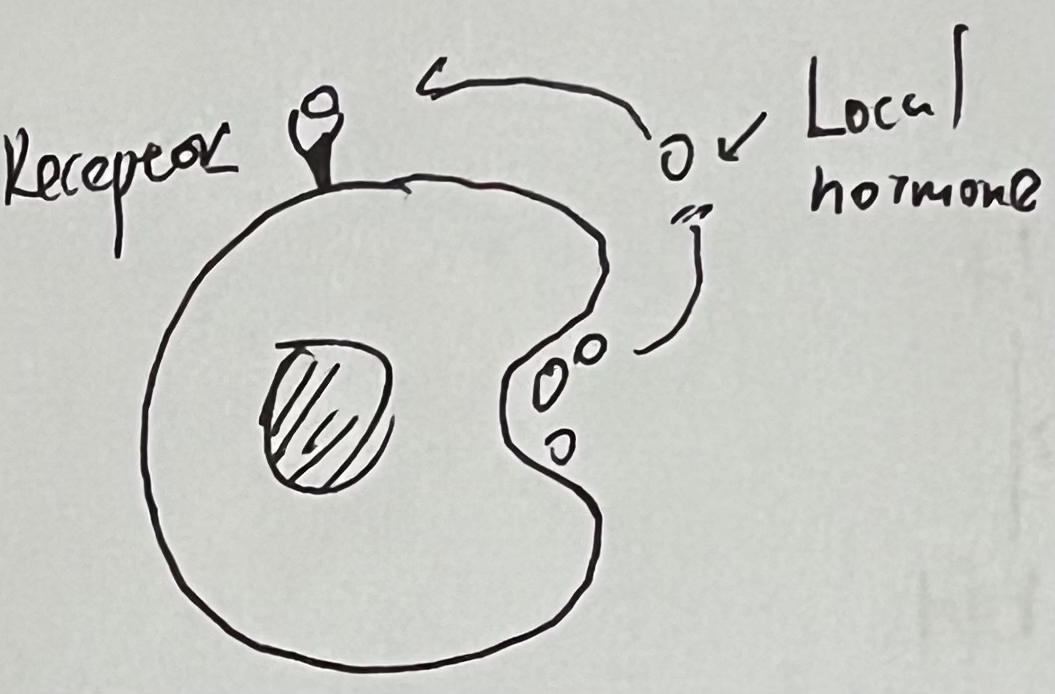 Receptor
Local
hormone